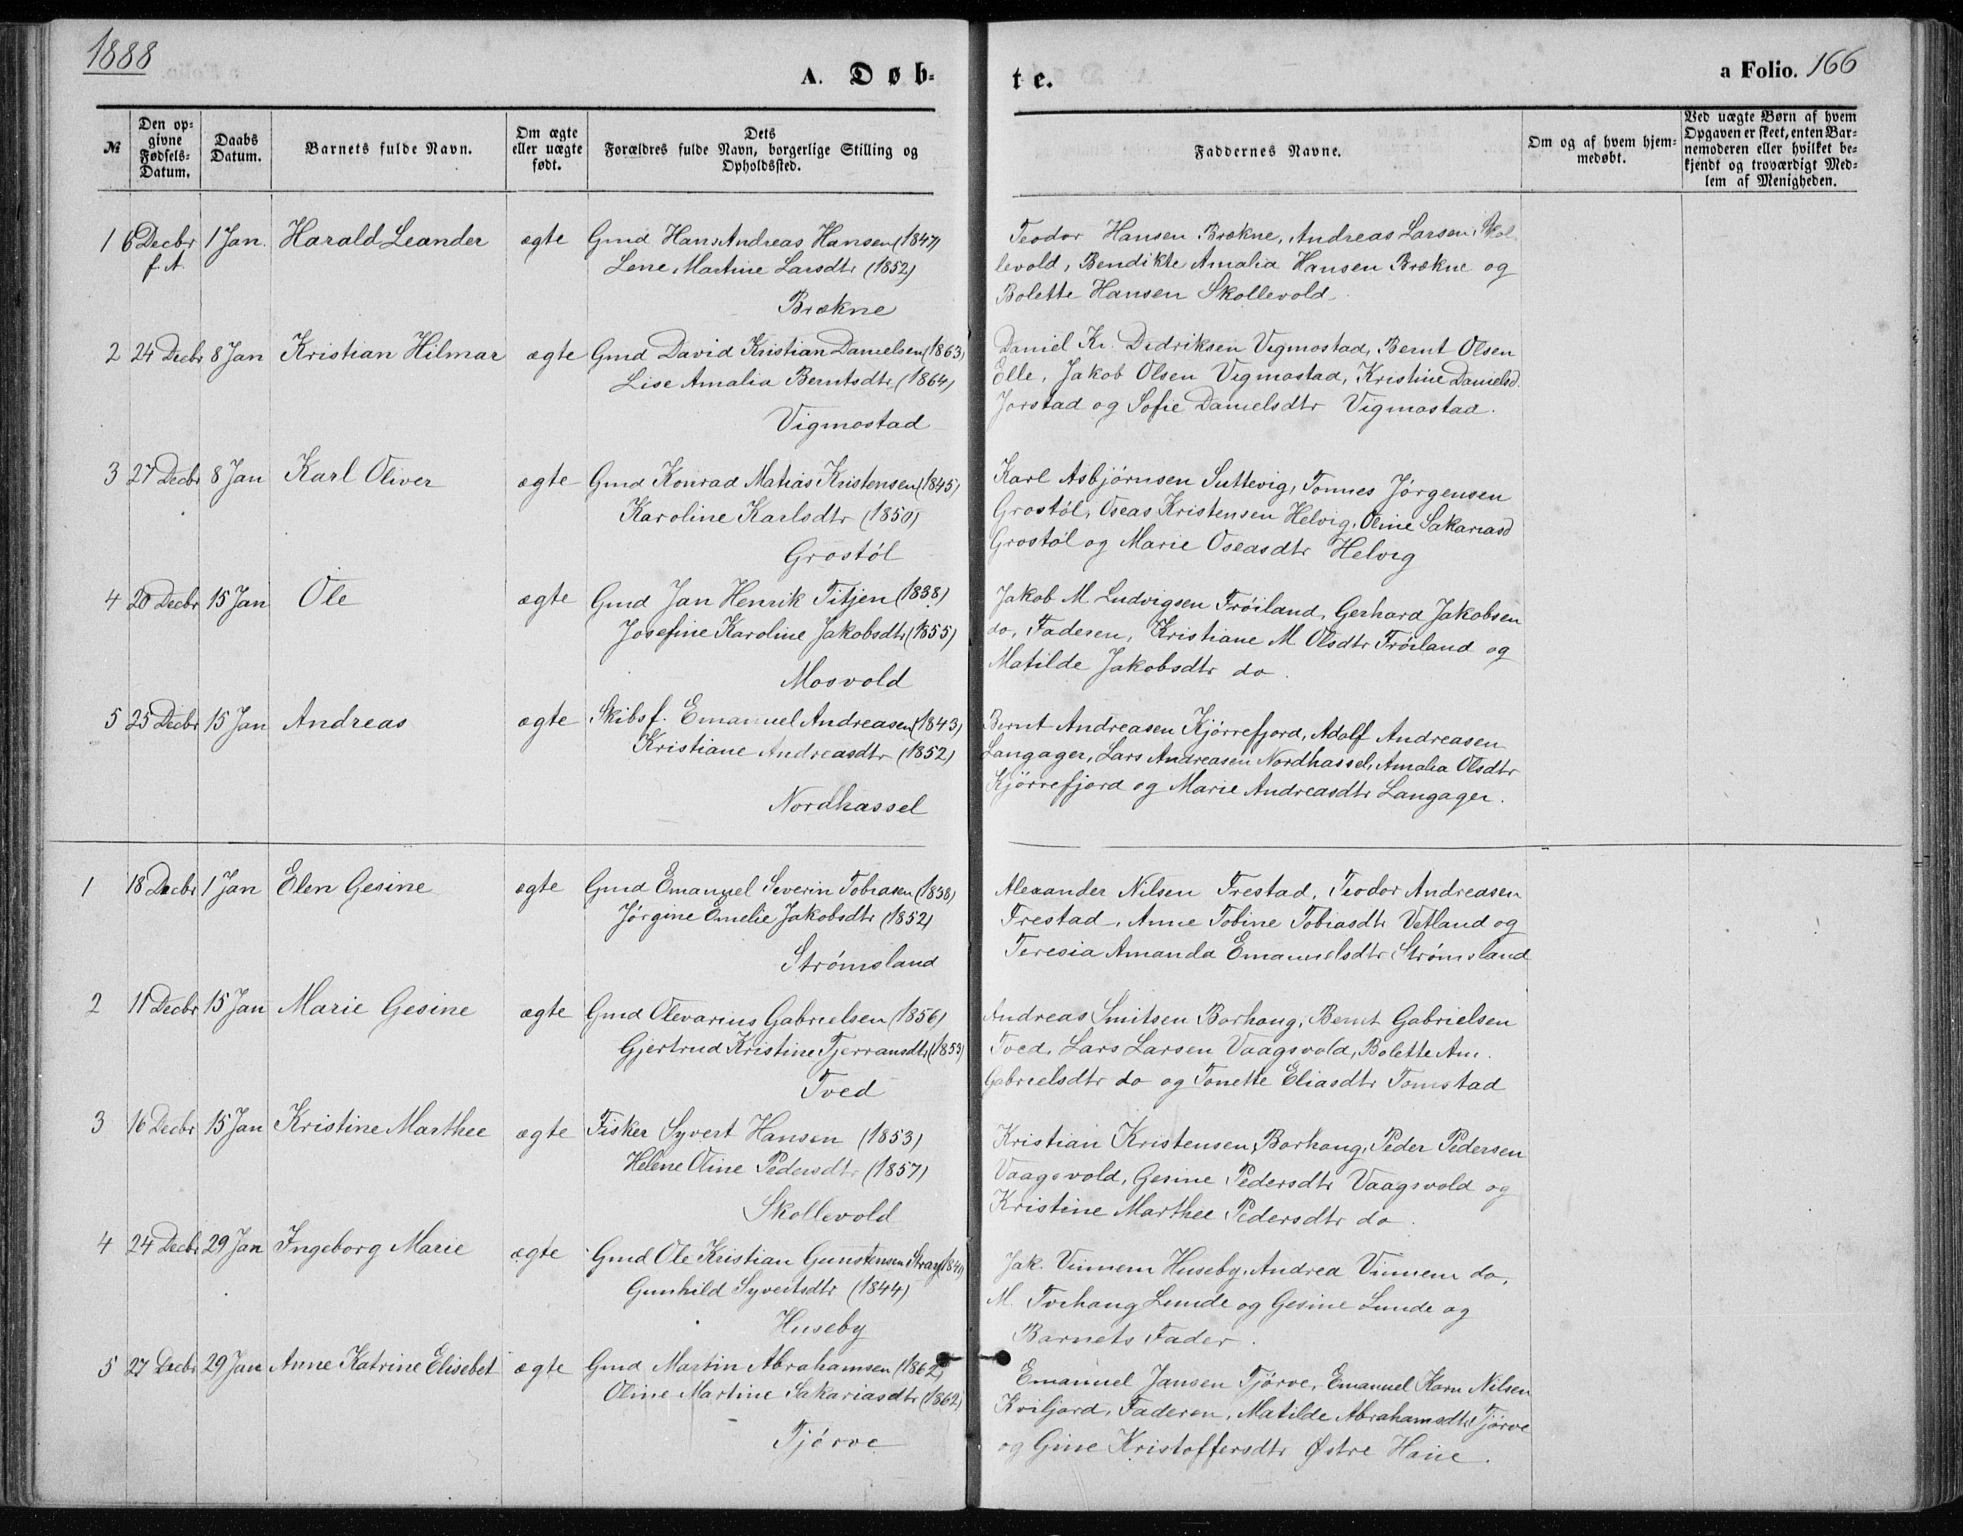 1888
A. Døb-
te.
a Folio. 166
№
Den op-
givne
Fødsels-
Datum.
Daabs
Datum.
Barnets fulde Navn.
Om ægte
eller uægte
født.
Dets
Forældres fulde Navn, borgerlige Stilling og
Opholdssted.
Faddernes Navne.
Om og af hvem hjem-
medøbt.
Ved uægte Børn af hvem
Opgaven er skeet, enten Bar-
nemoderen eller hvilket be-
kjendt og troværdigt Med-
lem af Menigheden.
1 6 Decbr 1 Jan. Harald Leander ægte Gmd Hans Andreas Hansen (1847)
f. A. Lene Martine Larsdtr (1852)
Brækne
Teodor Hansen Brækne, Andreas Larsen, Skol-
levold, Bendikte Amalia Hansen Brækne og
Bolette Hansen Skollevold.
2 24 Decbr 8 Jan Kristian Hilmar ægte Gmd David Kristian Danielsen (1863)
Lise Amalia Berntsdtr (1864)
Vigmostad
Daniel Kr. Dedriksen Vigmostad, Bernt Olsen
Elle, Jakob Olsen Vigmostad, Kristine Danielsd.
Jørstad og Sofie Danielsdtr Vigmostad.
3 27 Decbr 8 Jan Karl Oliver ægte Gmd Konrad Matias Kristensen (1845)
Karoline Karlsdtr (1850)
Grostøl
Karl Asbjørnsen Suttevig, Tønnes Jørgensen
Grostøl, Oseas Kristensen Helvig, Oline Sakariasd
Grostøl og Marie Oseasdtr Helvig
4 20 Decbr 15 Jan Ole ægte Gmd Jan Henrik Titjen (1838)
Josefine Karoline Jakobsdtr (1855)
Mosvold
Jakob M. Ludvigsen Frøiland, Gerhard Jakobsen
do, Faderen, Kristiane M Olsdtr Frøiland og
Matilde Jakobsdtr do.
5 25 Decbr 15 Jan Andreas ægte Skibsf. Emanuel Andreasen (1843)
Kristiane Andreasdtr (1852)
Nordhassel
Bernt Andreasen Kjørrefjord, Adolf Andreasen
Langager, Lars Andreasen Nordhassel, Amalia Olsdtr
Kjørrefjord og Marie Andreasdtr Langager.
1 18 Decbr 1 Jan Elen Gesine ægte Gmd Emanuel Severin Tobiasen (1838)
Jørgine Emelie Jakobsdtr (1852)
Strømsland
Alexander Nilsen Frestad, Teodor Andreasen
Frestad, Anne Tobine Tobiasdtr Vetland og
Teresia Amanda Emanuelsdtr Strømsland
2 11 Decbr 15 Jan Marie Gesine ægte Gmd Olevarius Gabrielsen (1856)
Gjertrud Kristine Tjerransdtr (1853)
Tved
Andreas Smitsen Borhaug, Bernt Gabrielsen
Tved, Lars Larsen Vaagsvold, Bolette Am.
Gabrielsdtr do og Tonette Eliasdtr Tomstad
3 16 Decbr 15 Jan Kristine Marthee ægte Fisker Syvert Hansen (1853)
Helene Oline Pedersdtr (1857)
Skollevold
Kristian Kristensen Borhaug, Peder Pedersen
Vaagsvold, Gesine Pedersdtr Vaagsvold og
Kristine Marthee Pedersdtr do.
4 24 Decbr 29 Jan Ingeborg Marie ægte Gmd Ole Kristian Gunstensen Stray
Gunhild Syvertsdtr (1844)
Huseby
Jak. Vinnem Huseby, Andrea Vinnem do,
M. Torhaug Lunde og Gesine Lunde og
Barnets Fader.
5 27 Decbr 29 Jan Anne Katrine Elisebet ægte Gmd Martin Abrahamsen (1862)
Oline Martine Sakariasdtr (1862)
Tjørve
Emanuel Jansen Tjørve, Emanuel Korn. Nilsen
Kviljord, Faderen, Matilde Abrahamsdtr Tjørve
og Gine Kristoffersdtr Østre Haue.